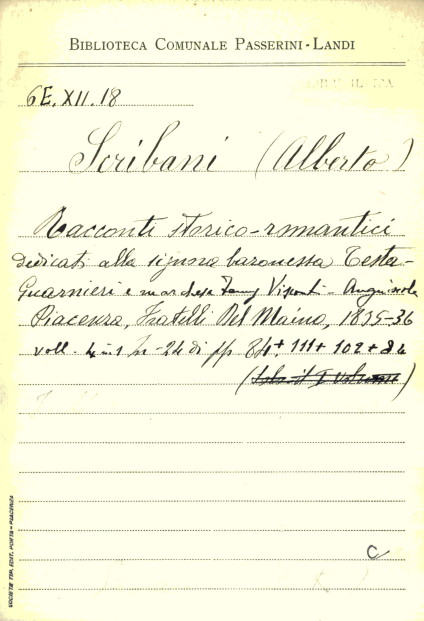 BIBLIOTECA COMUNALE PASSERINI-LANDI
6E. XII. 18
Scribani (Alberto)
Racconti storico-romantici
dedicati alla signora baronessa Testa-
Guarnieri e marchesa Fanny Visconti-Anguissola
Piacenza, Fratelli Del Maino, 1835-36
voll. 4 in 1 in-24 di pp 84+111+102+84
(Solo il I volume)
C
SOCIETÀ TIP. EDIT. PORTA - PIACENZA